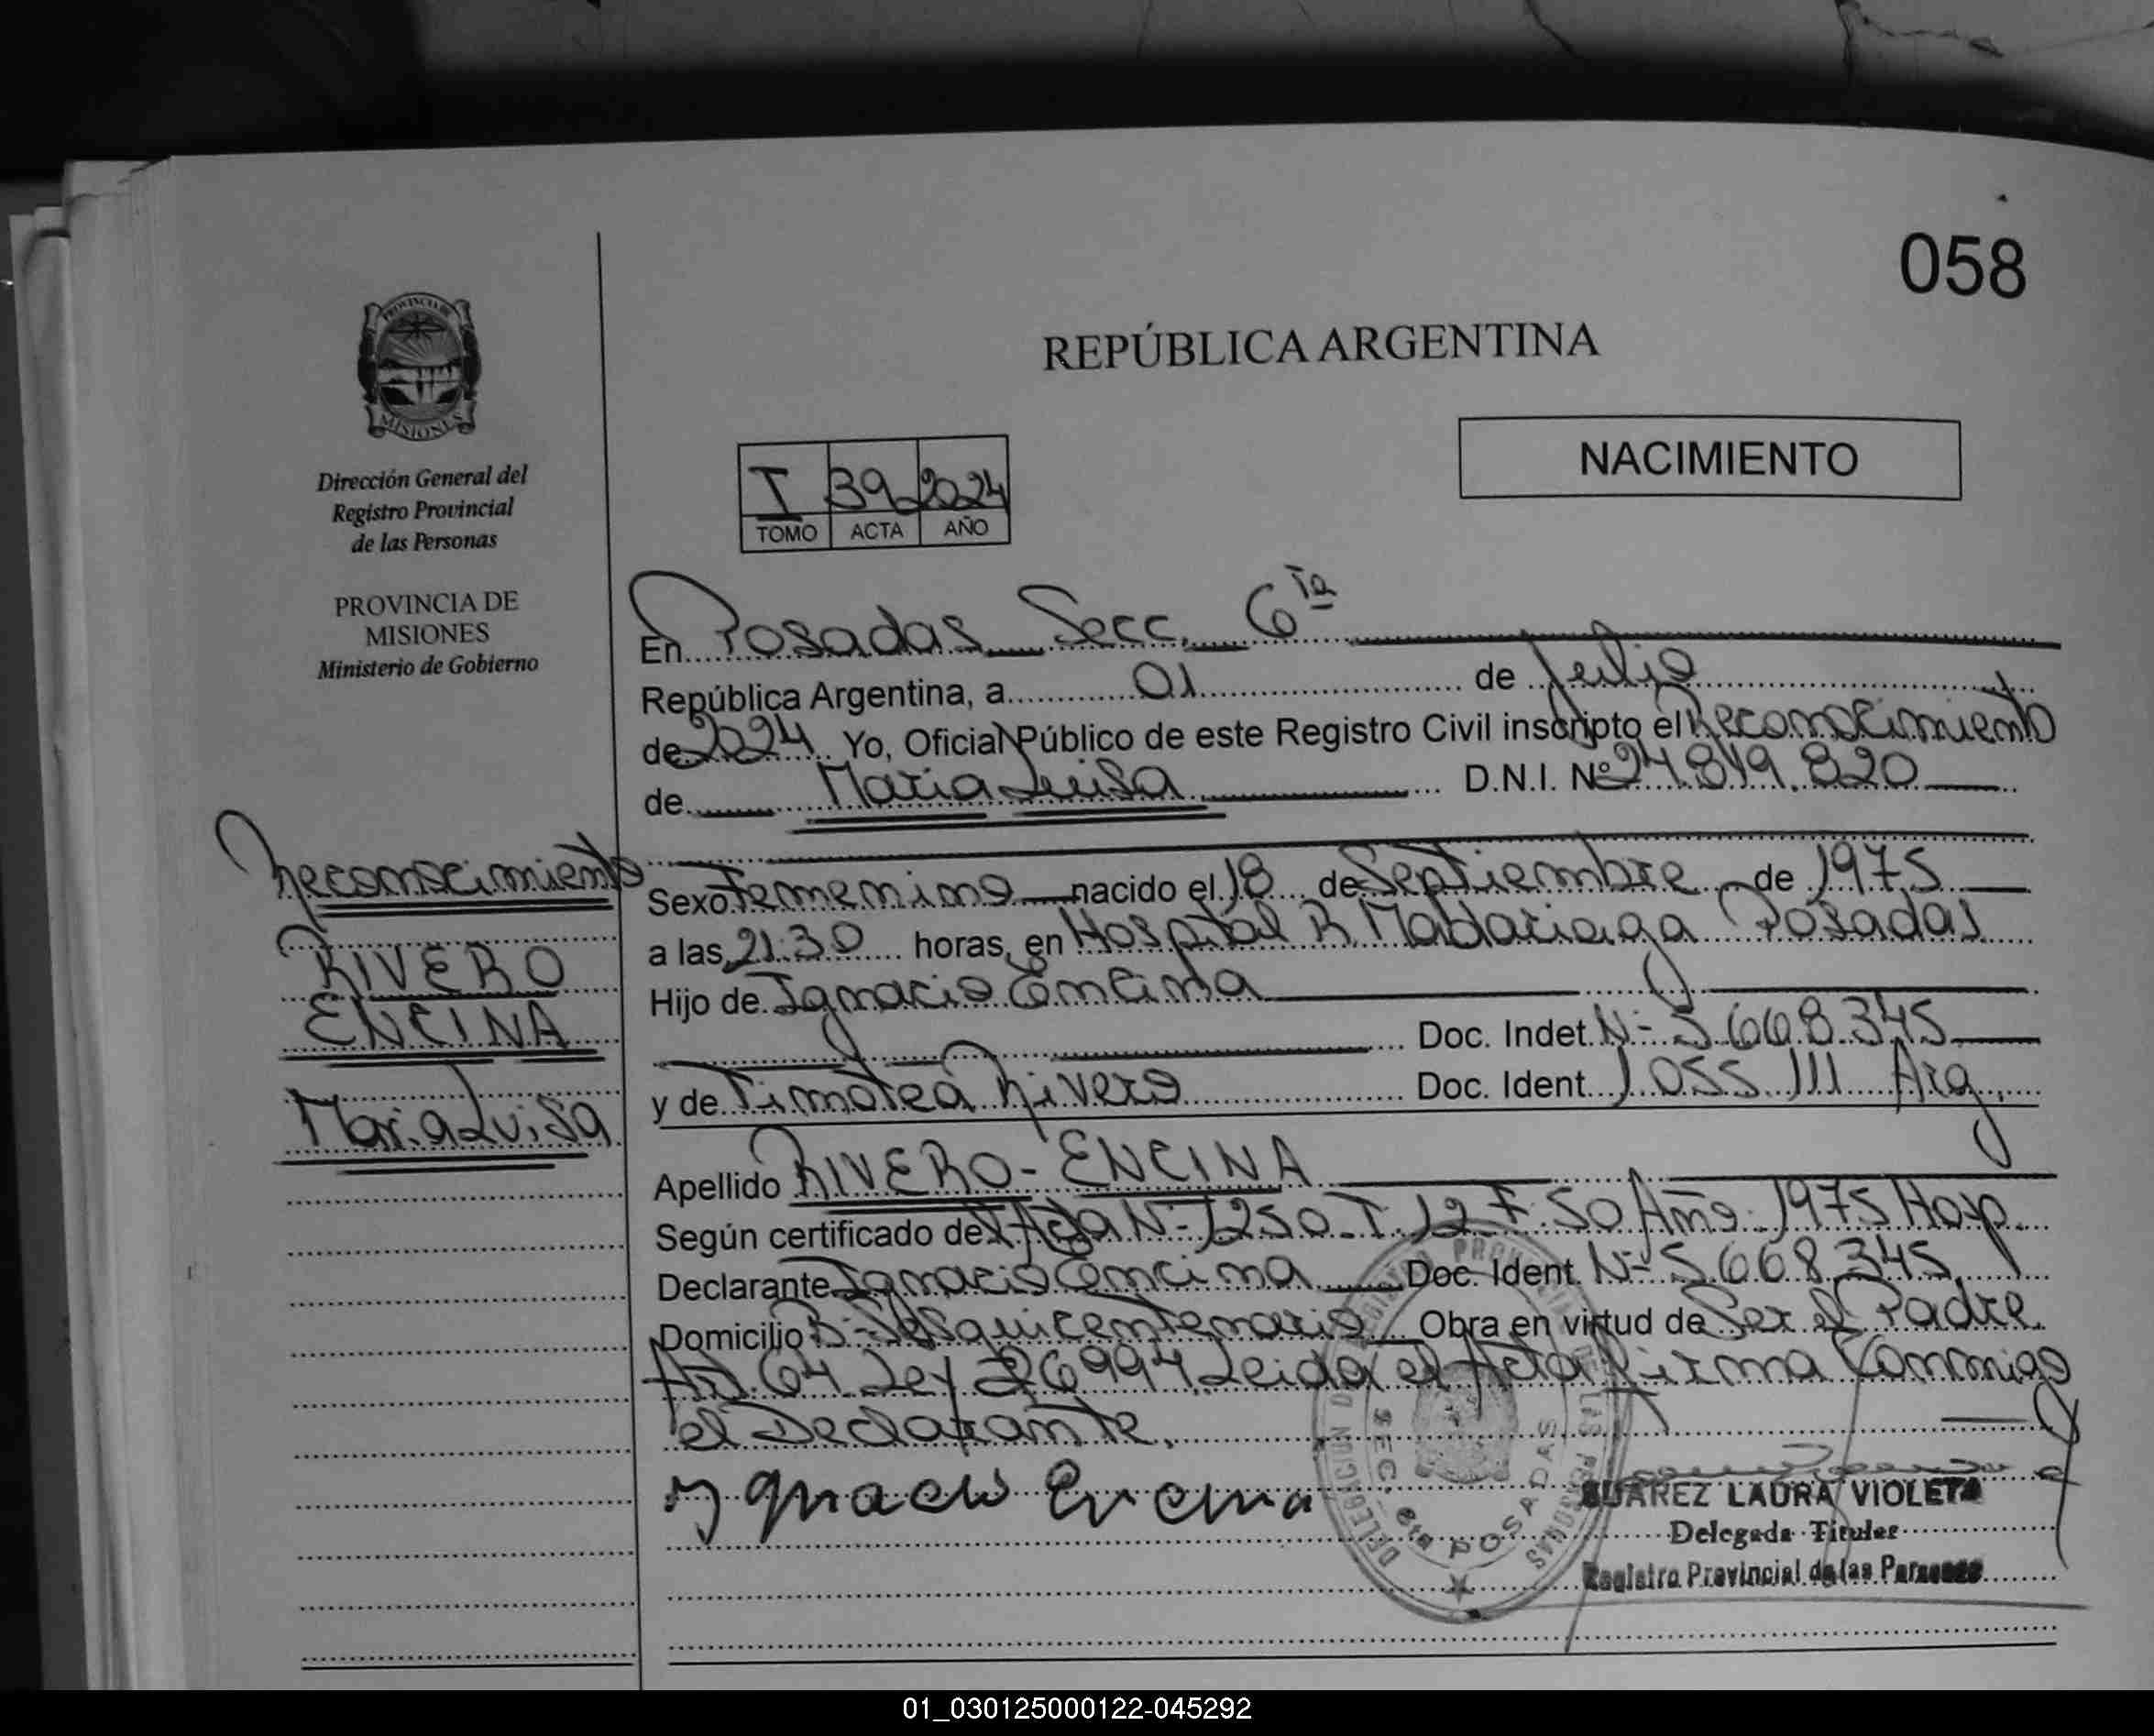 058
PROVINCIA DE
MISIONES
Dirección General del
Registro Provincial
de las Personas
PROVINCIA DE
MISIONES
Ministerio de Gobierno
REPÚBLICA ARGENTINA
NACIMIENTO
I 39 2024
TOMO ACTA AÑO
En Posadas Secc. 6ta
República Argentina, a 01 de Julio
de 2024 Yo, Oficial Público de este Registro Civil inscripto el Reconocimiento
de Maria Luisa D.N.I. Nº 24.849.820
Reconocimiento
RIVERO
ENCINA
Maria Luisa
Sexo Femenino nacido el 18 de Septiembre de 1975
a las 21:30 horas, en Hospital R. Madariaga Posadas
Hijo de Ignacio Encina
Doc. Indet. Nº 5.668.345
y de Timotea Rivero Doc. Ident 1.055.111 Arg
Apellido RIVERO - ENCINA
Según certificado de Acta Nº 1250 T. 12 F. 50 Año 1975 Hosp.
Declarante Ignacio Encina Doc. Ident. Nº 5.668.345
Domicilio Bº Sesquicentenario Obra en virtud de Ser el Padre
Art. 64 Ley 26994 Leida el Acta Firma Conmigo
el Declarante.
Ygnacio Encina
SEC. 6ta POSADAS
SUAREZ LAURA VIOLETA
Delegada Titular
Registro Provincial de las Personas
01_030125000122-045292